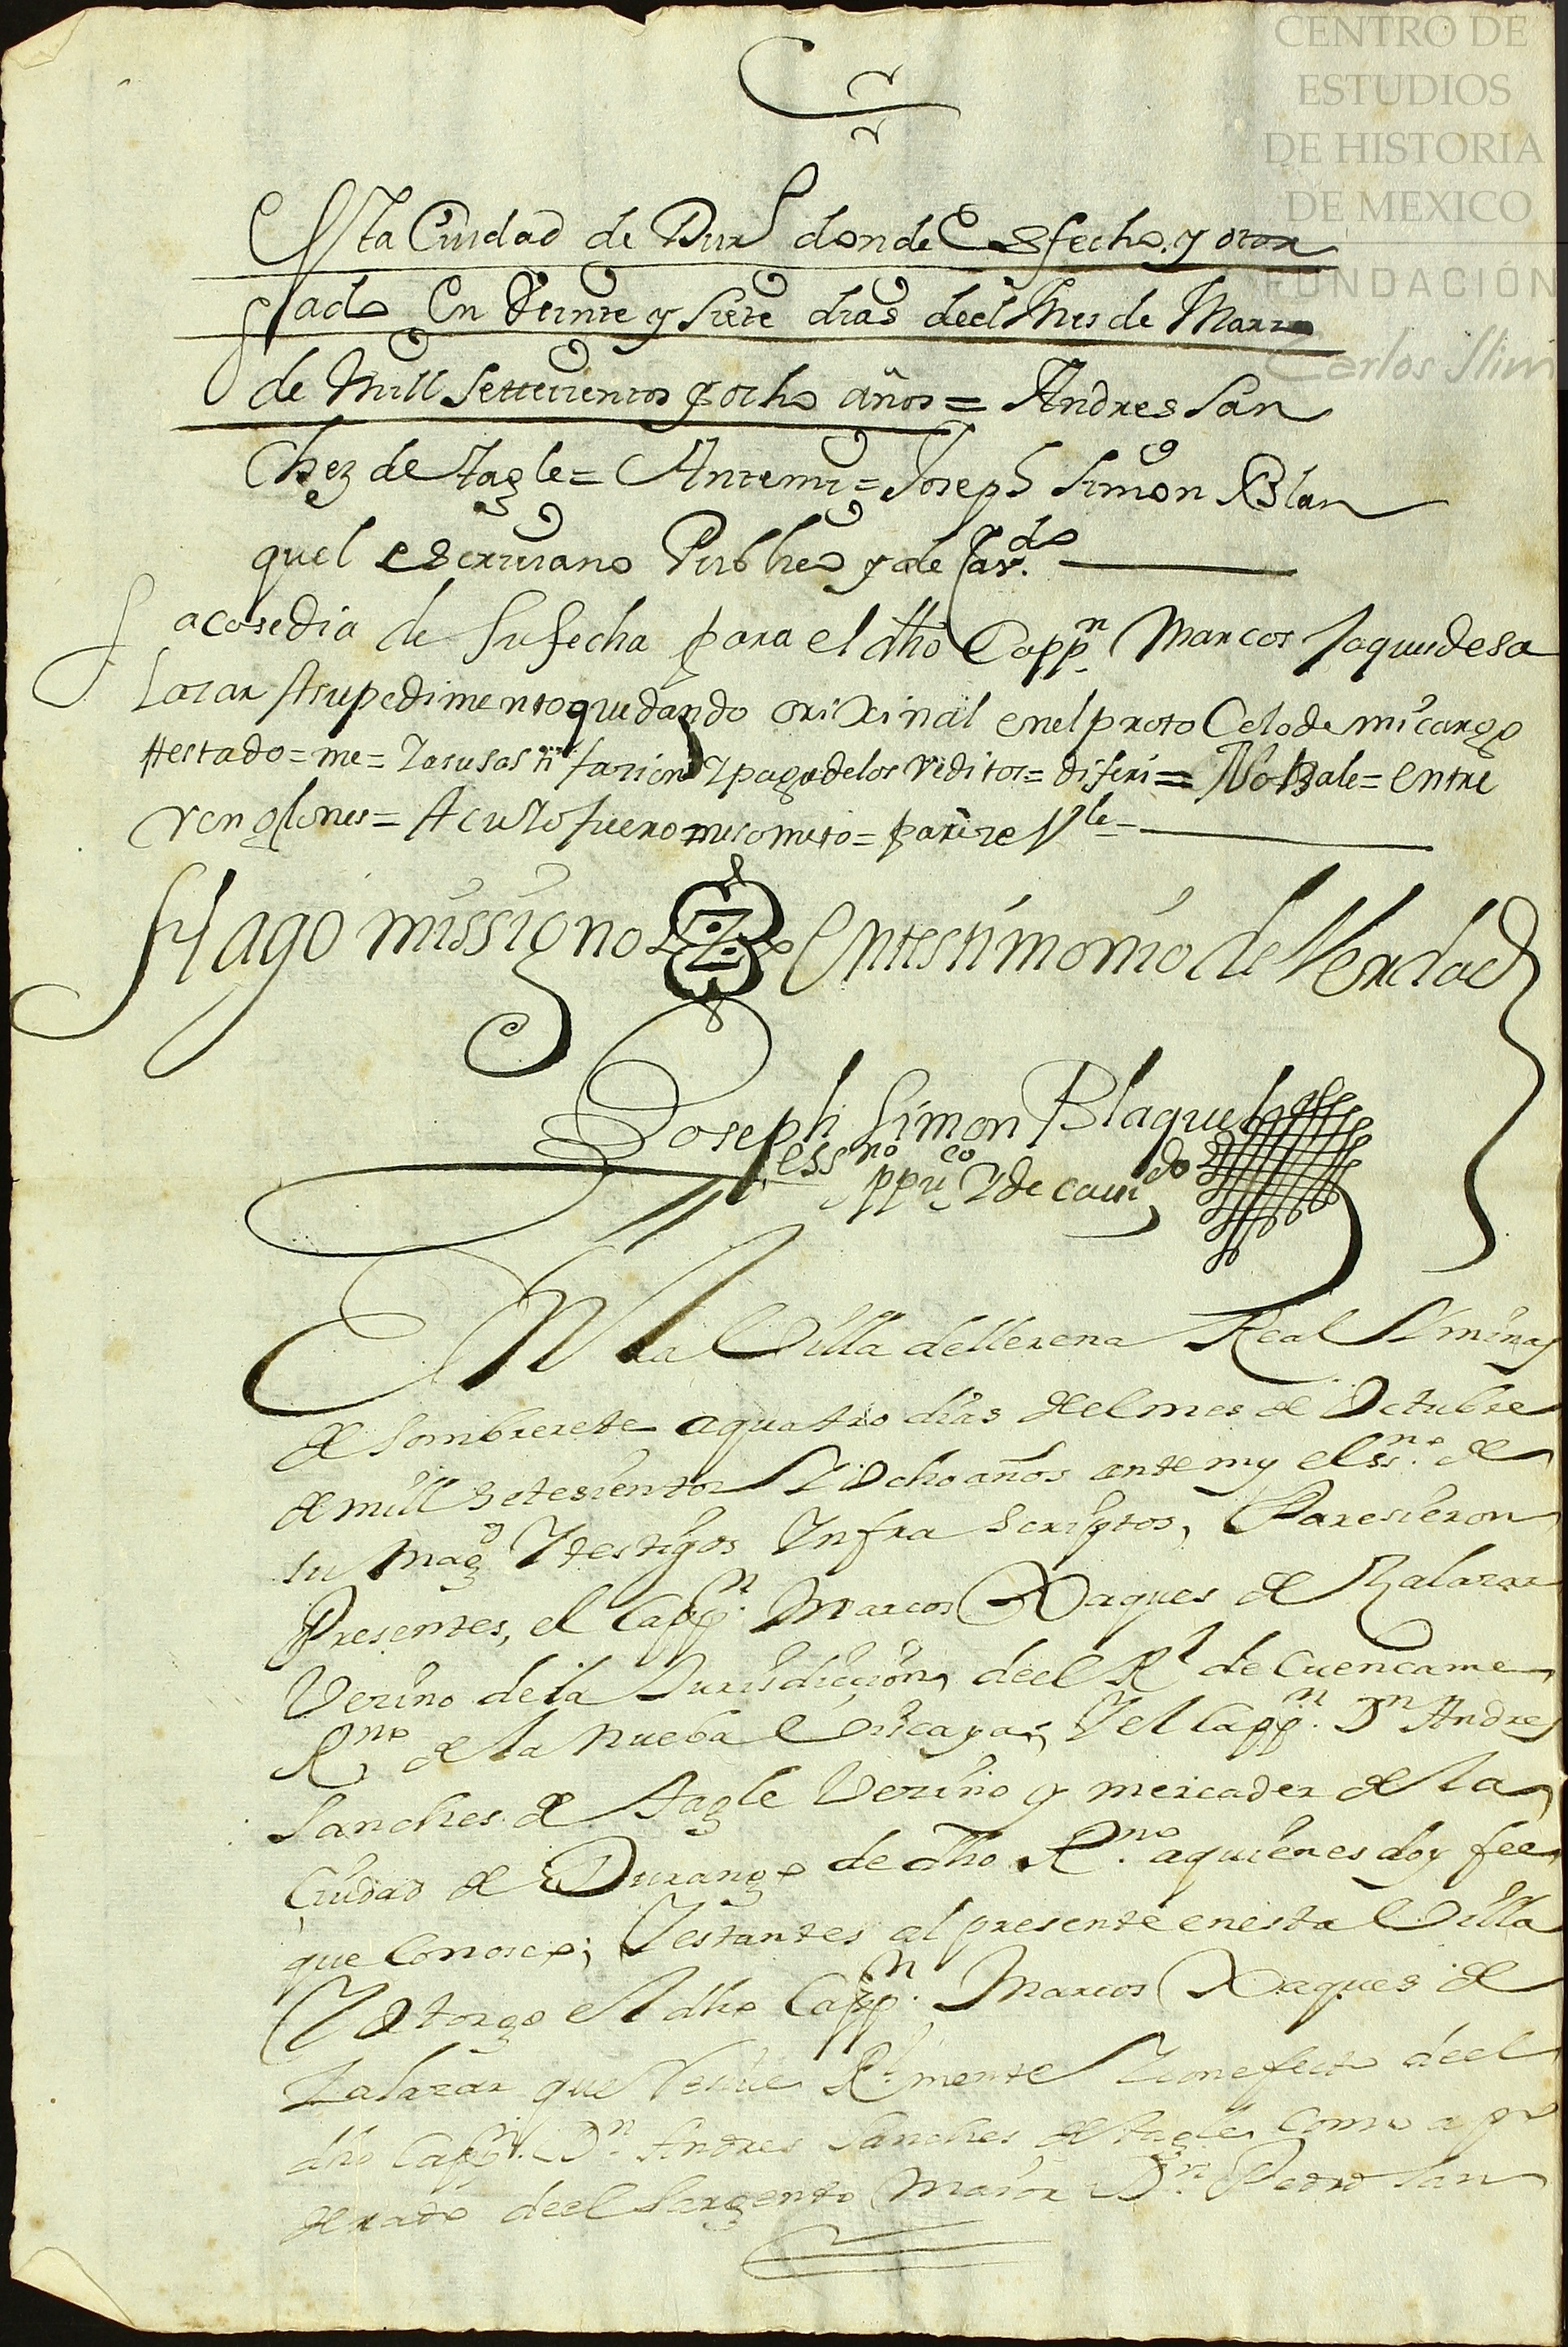 CENTRO DE
ESTUDIOS
DE HISTORIA
DE MEXICO
FUNDACIÓN
Carlos Slim
Esta Ciudad de Durº donde Es fecho. y otor
gado En Veinte y Siete dias deel Mes de Marzo
de Mill Settecientos y ocho años = Andres San
Chez de Tagle = Antemi = Joseph Simon Blan
quel escriuano Publico y de Cav.do
Sacose dia de Su fecha para el dho Cappn Marcos Jaquesdesa
Lazar A su pedimento quedando orixinal en el protoCelo de mi cargo
testado = me = Ya su sastifazion Y paga de los reditos = diferi = No Bale = entre
renglones = A Cuio fuero me someto = parize Vle
Hago missigno En testimonio de Verdad
Joseph Simon Blaquel
essno ppuco Y de cauido
En la Villa dellerena Real Y minas
de Sombrerete a quatro dias del mes de Octubre
de mill setesientos Y Ocho años ante my el ssno. de
su Magd Y testigos Ynfra Scriptos, Paresieron
Presentes, el Cappn. Marcos Xaques de Zalazar
Vezino de la Jurisdiccion deel Rl de Cuencame
Rno de la Nueba Viscaya; Y el Cappn. Dn Andres
Sanches de Tagle Vezino y mercader de la
Ciudad de Durango de dho Rno. a quienes doy fee
que Conosco; Y estantes al presente en esta Villa
Y Otorgo el dho Cappn. Marcos Xaques de
Zalazar que resiue Rl.mente Y con efecto deel
dho Cappn. Dn. Andres Sanches de Tagle Como apo
derado deel Sargento Maior Dn. Pedro San